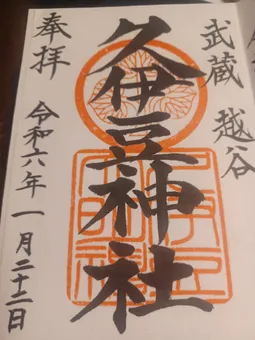 武蔵 越谷
久伊豆神社
奉拝
令和六年 一月二十二日